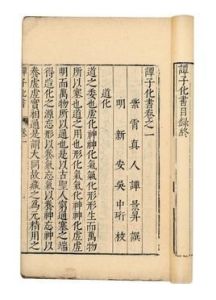 譚子化書目錄終
譚子化書卷之一
紫霄真人譚景昇譔
明新安吳中珩校
道化
道之委也虛化神神化氣氣化形形生而萬物
所以塞也道之用也形化氣氣化神神化虛虛
明而萬物所以通也是以古聖人窮通塞之端
得造化之源忘形以養氣忘氣以養神忘神以
養虛虛實相通是謂大同故藏之為元精用之